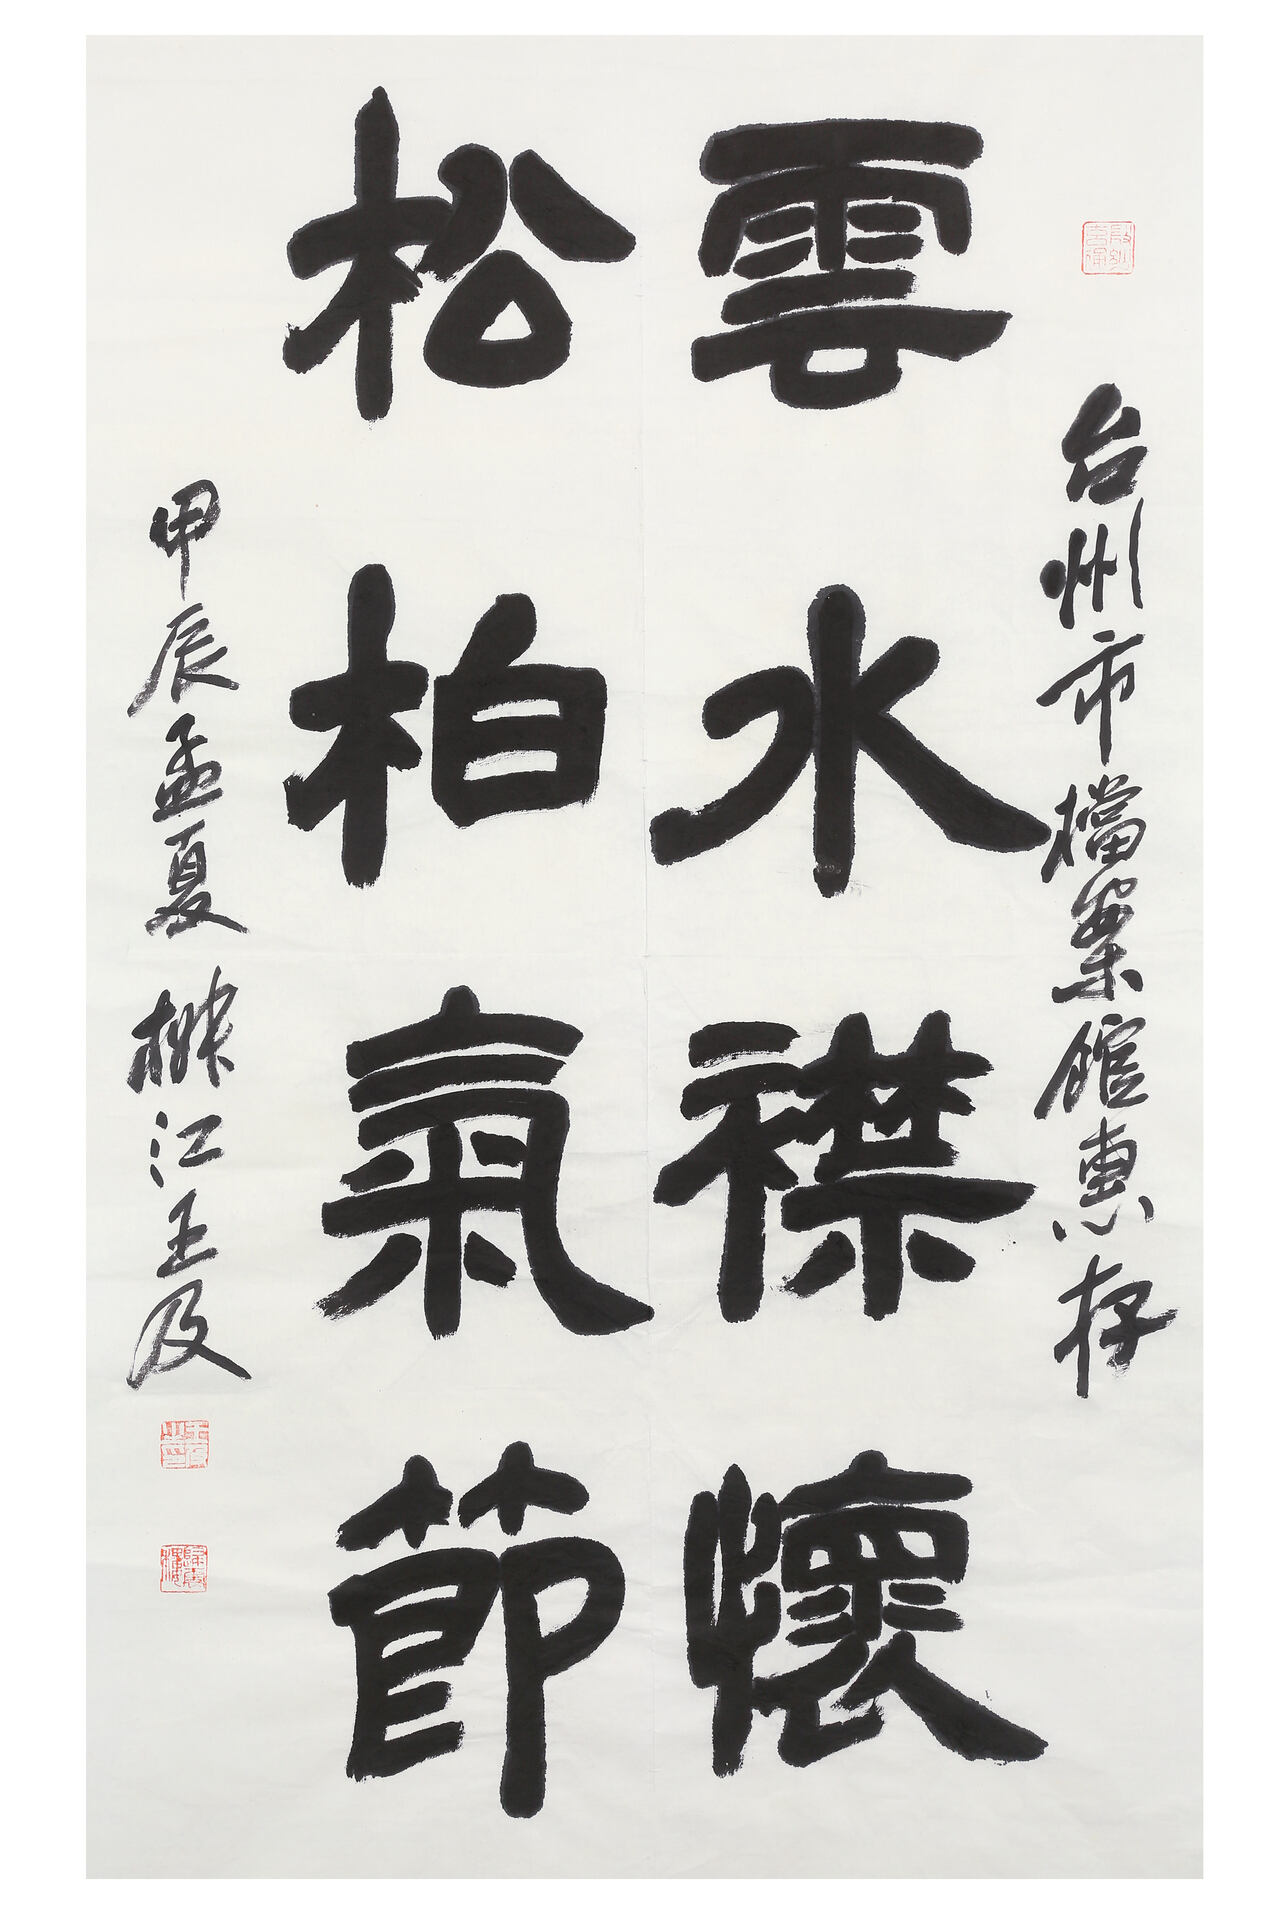 台州市檔案館惠存
雲水襟懷
松柏氣節
甲辰孟夏椒江王及
王及之印